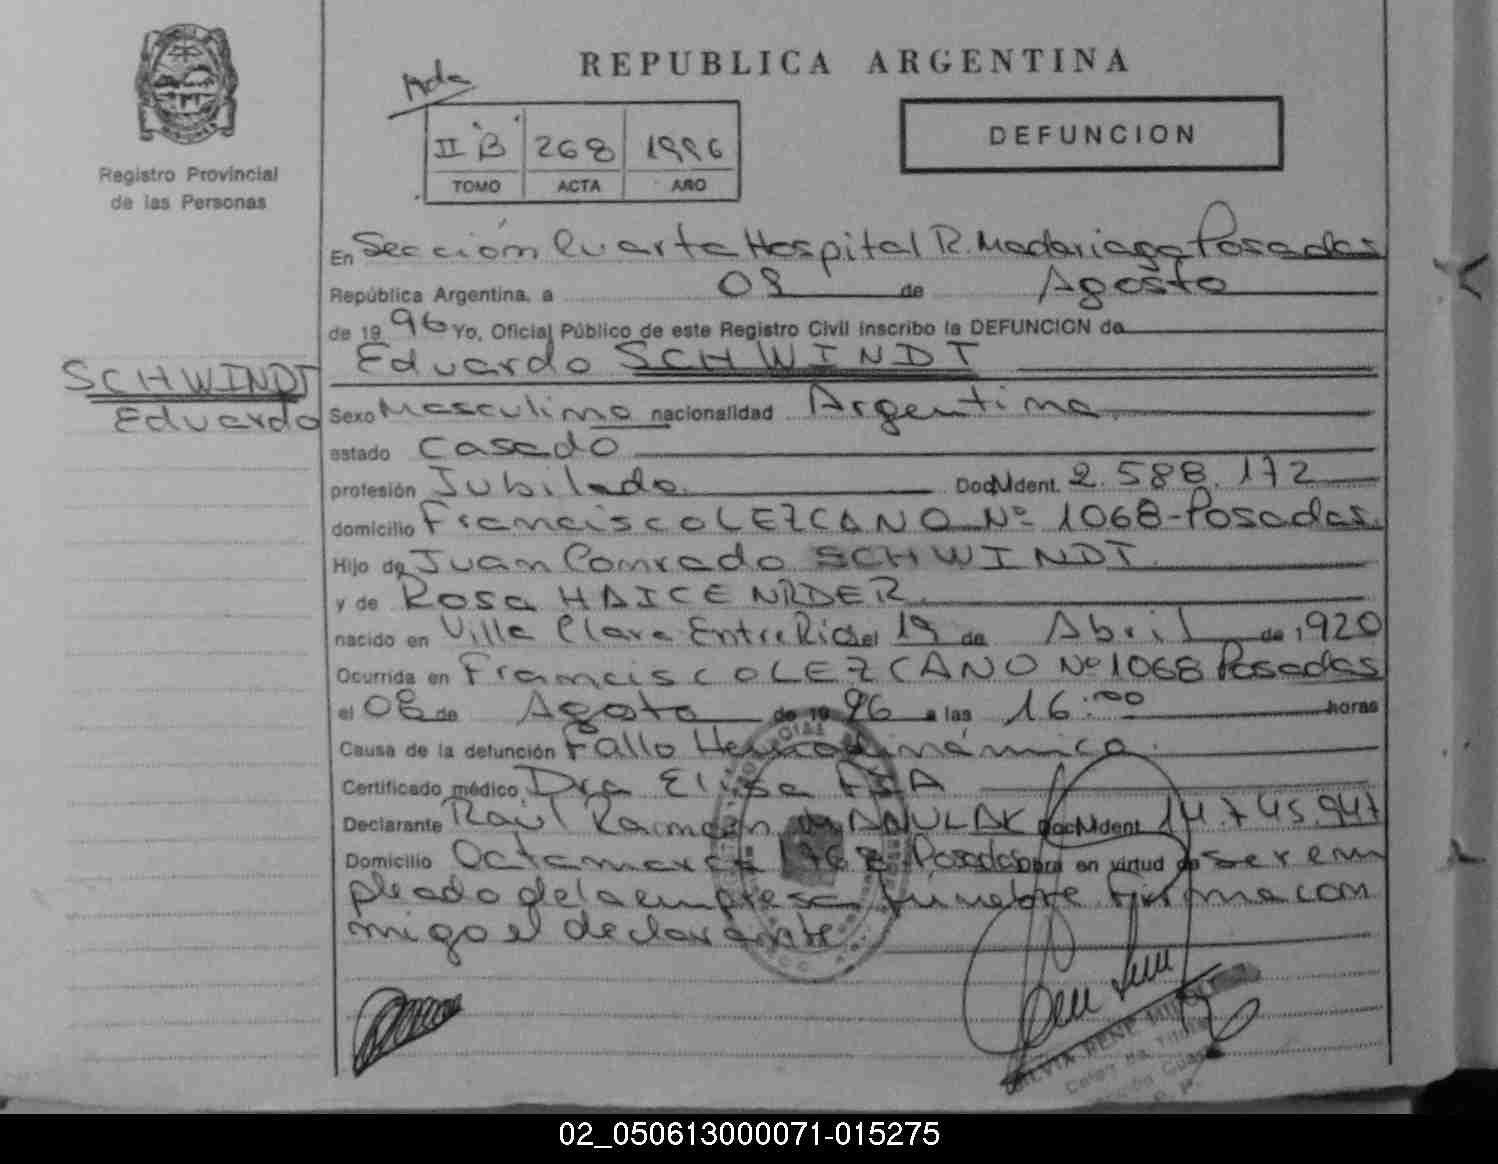 REPUBLICA ARGENTINA
Acta
II "B" 268 1996
TOMO ACTA AÑO
DEFUNCION
Registro Provincial
de las Personas
En Sección Cuarta Hospital R. Madariaga Posadas
República Argentina, a 08 de Agosto
de 1996 Yo, Oficial Público de este Registro Civil inscribo la DEFUNCION de
Eduardo SCHWINDT
SCHWINDT
Eduardo
Sexo Masculino nacionalidad Argentina
estado Casado
profesión Jubilado Doc Ident. 2.588.172
domicilio Francisco LEZCANO Nº 1068-Posadas
Hijo de Juan Conrado SCHWINDT
y de Rosa HAICENRDER
nacido en Villa Clara Entre Rios el 19 de Abril de 1920
Ocurrida en Francisco LEZCANO Nº 1068 Posadas
el 08 de Agosto de 1996 a las 16:00 horas
Causa de la defunción Fallo Hemodinámica
Certificado médico Dra Elisa
Declarante Raúl Ramón Doc Ident 14.745.947
Domicilio Posadas en virtud de ser em
pleado de la empresa funebre firma con
migo el declarante
02_050613000071-015275